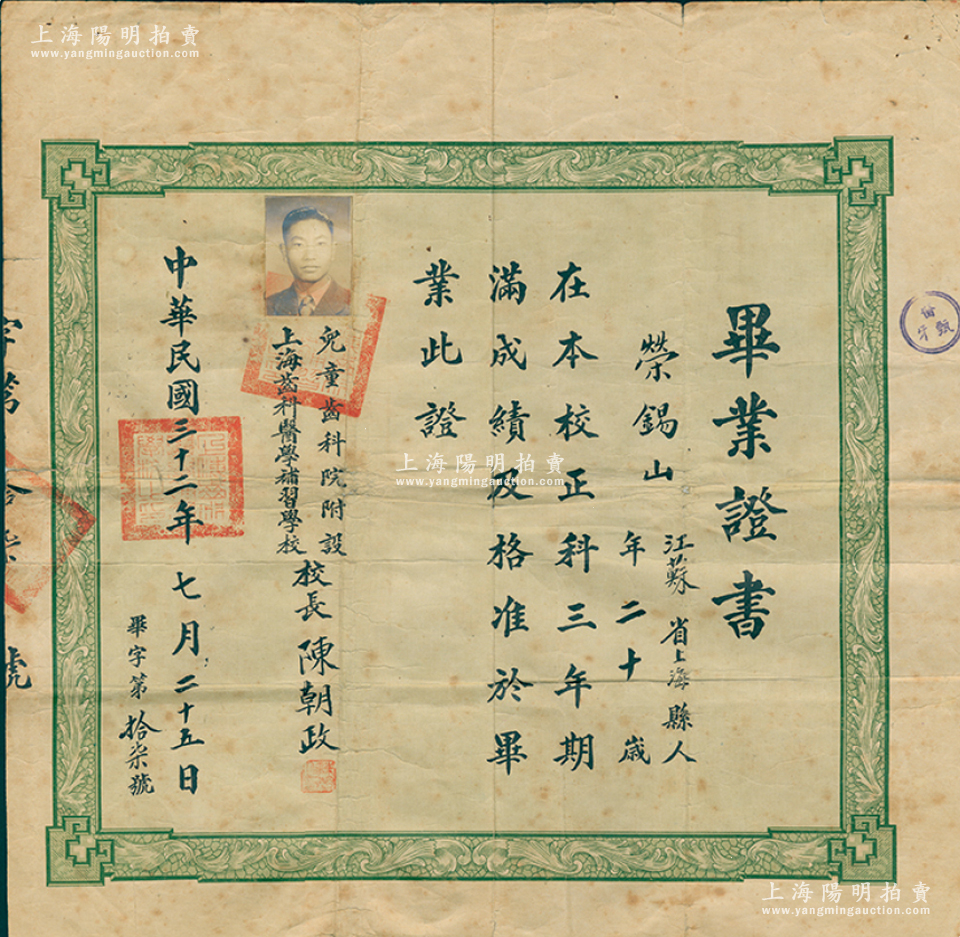 上海陽明拍賣
www.yangmingauction.com
畢業證書
榮錫山
江蘇省上海縣人
年二十歲
在本校正科三年期
滿成績及格准於畢
業此證
兒童齒科院附設
上海齒科醫學補習學校
校長陳朝政
中華民國三十二年七月二十五日
畢字第拾柒號
字第拾柒號
上海陽明拍賣
www.yangmingauction.com
上海陽明拍賣
www.yangmingauction.com